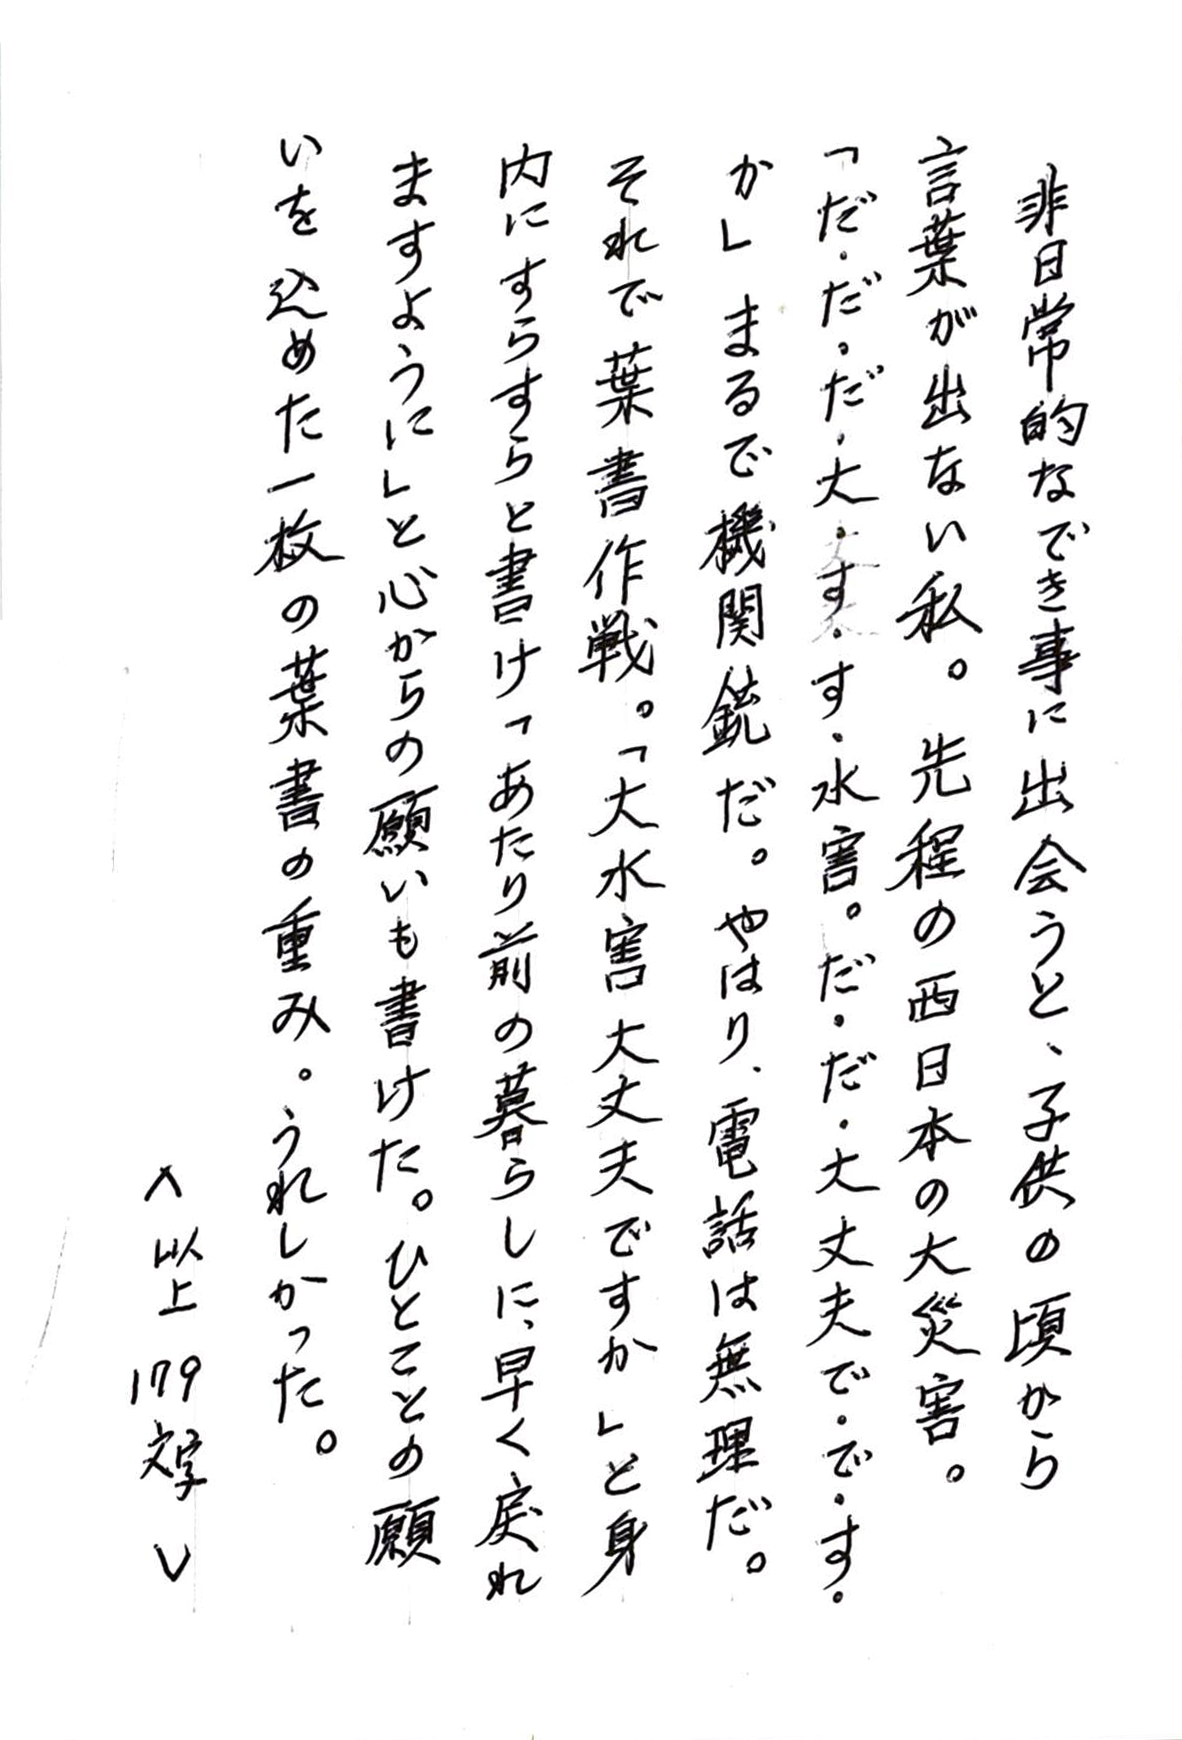 非日常的なでき事に出会うと、子供の頃から
言葉が出ない私。先程の西日本の大災害。
「だ・だ・だ・大・す・す・水害。だ・だ・大丈夫で・で・す・
か」まるで機関銃だ。やはり、電話は無理だ。
それで葉書作戦。「大水害大丈夫ですか」と身
内にすらすらと書け「あたり前の暮らしに、早く戻れ
ますように」と心からの願いも書けた。ひとことの願
いを込めた一枚の葉書の重み。うれしかった。
〈以上179文字〉